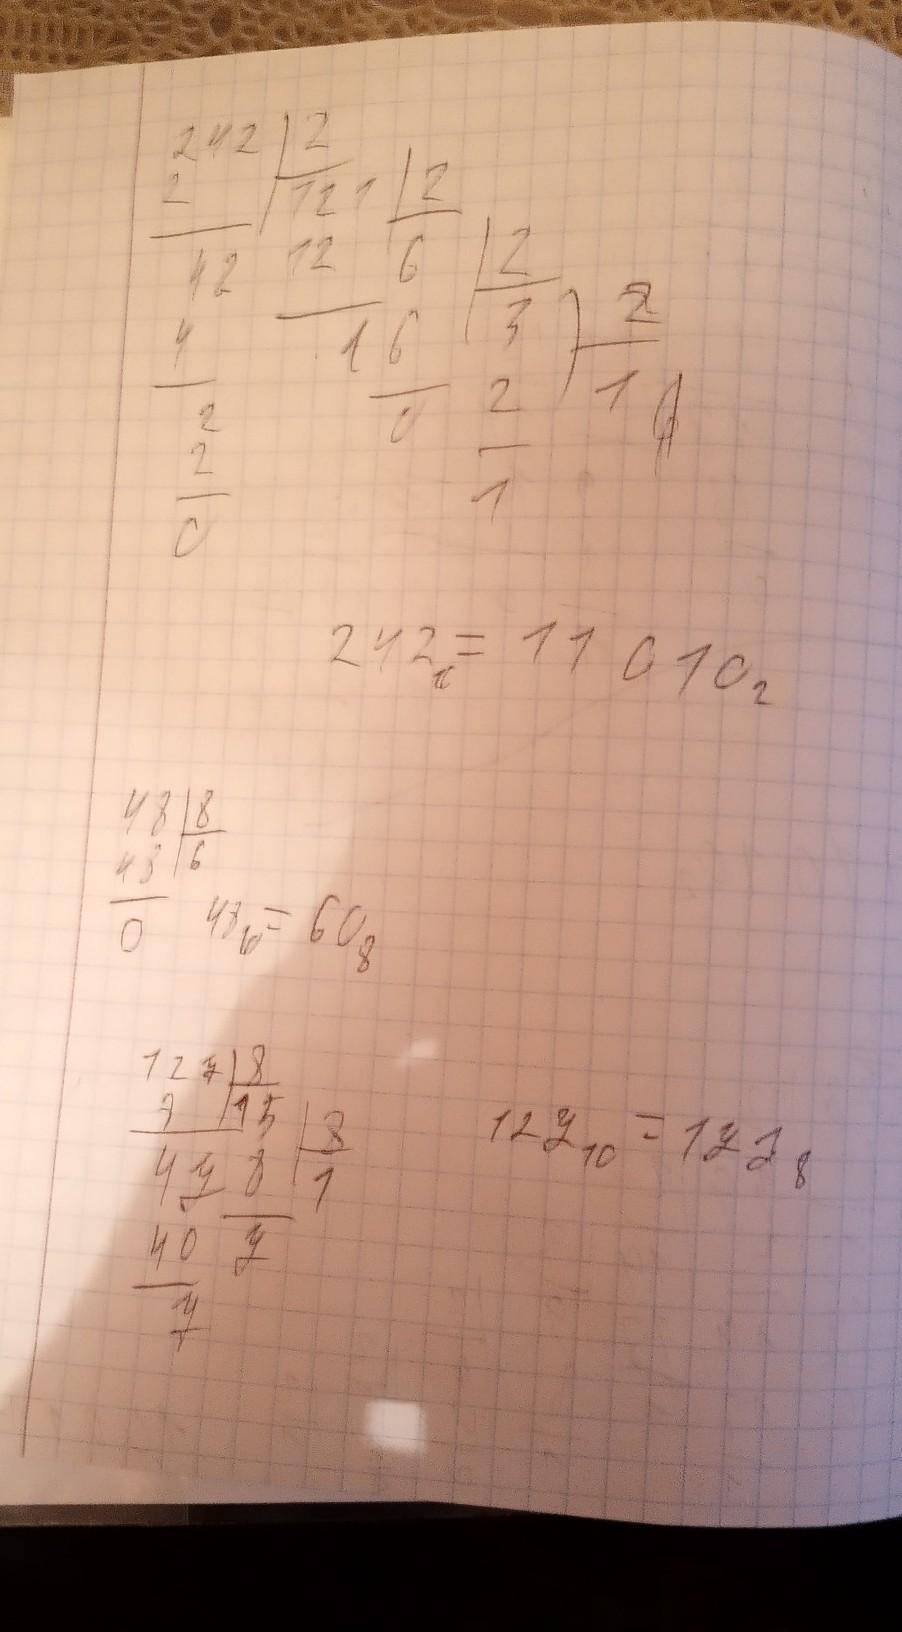 242 | 2
2 | 121 | 2
42 12 6 | 2
4 1 6 3 | 2
2 0 2 1
2 1
0
242₁₀ = 11010₂
48 | 8
48 6
0 48₁₀ = 60₈
127 | 8
7 15 | 8
47 8 1
40 7
7
127₁₀ = 177₈